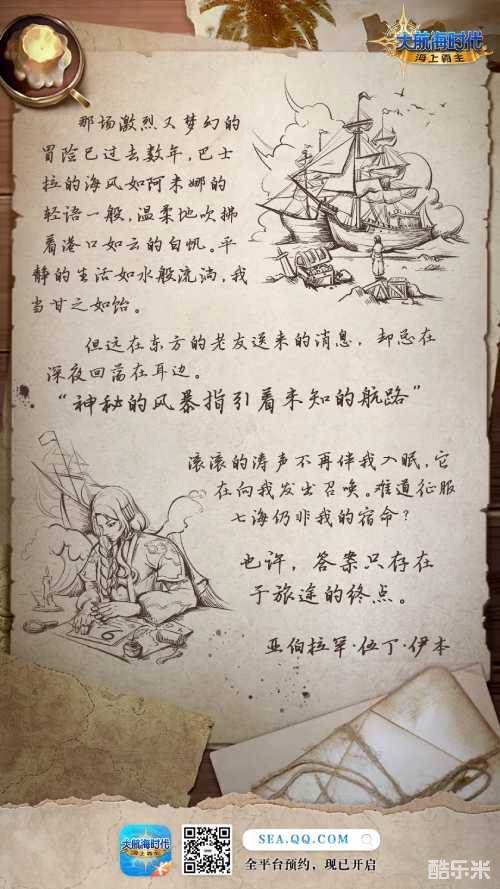 大航海时代
海上霸主
那场激烈又梦幻的
冒险已过去数年,巴士
拉的海风如阿米娜的
轻语一般,温柔地吹拂
着港口如云的白帆。平
静的生活如水般流淌,我
当甘之如饴。
但远在东方的老友送来的消息,却总在
深夜回荡在耳边。
“神秘的风暴指引着未知的航路”
滚滚的涛声不再伴我入眠,它
在向我发出召唤。难道征服
七海仍非我的宿命?
也许,答案只存在
于旅途的终点。
亚伯拉罕·伍丁·伊本
大航海时代
海上霸主
SEA.QQ.COM
全平台预约,现已开启
酷乐米